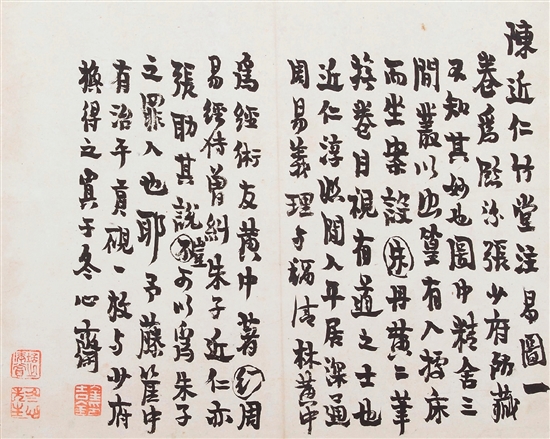 陳近仁竹堂注易圖一
卷爲張少府所藏
不知其妙也圖中精舍三
間叢以篁有人據床
而坐案設朱丹黄二筆
卷目視有道之士也
近仁淳熙間人年居深通
周易義理与福清林黄中
爲經術友黄中著周
易經傳曾糾朱子近仁亦
張助其說可以爲朱子
之罪人也耶予藤笈中
有治平貢硯一枚与少府
換得之寘于冬心齋